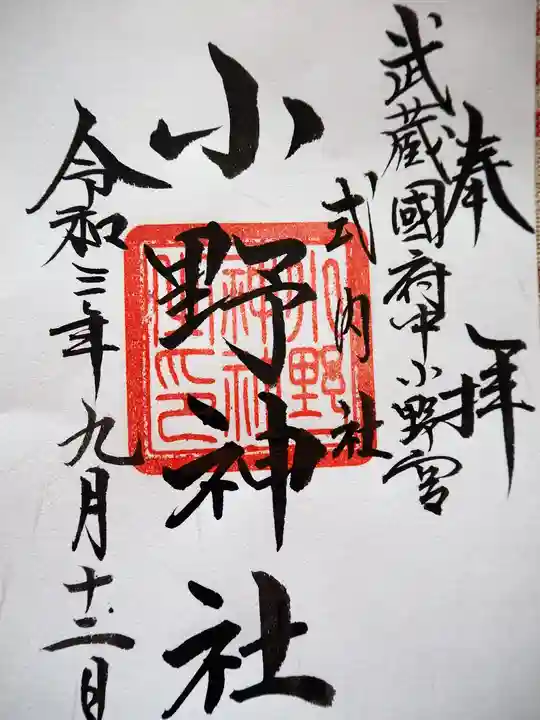 奉拝
武蔵國府中小野宮
式内社
小野神社
令和三年九月十二日
小野
神社